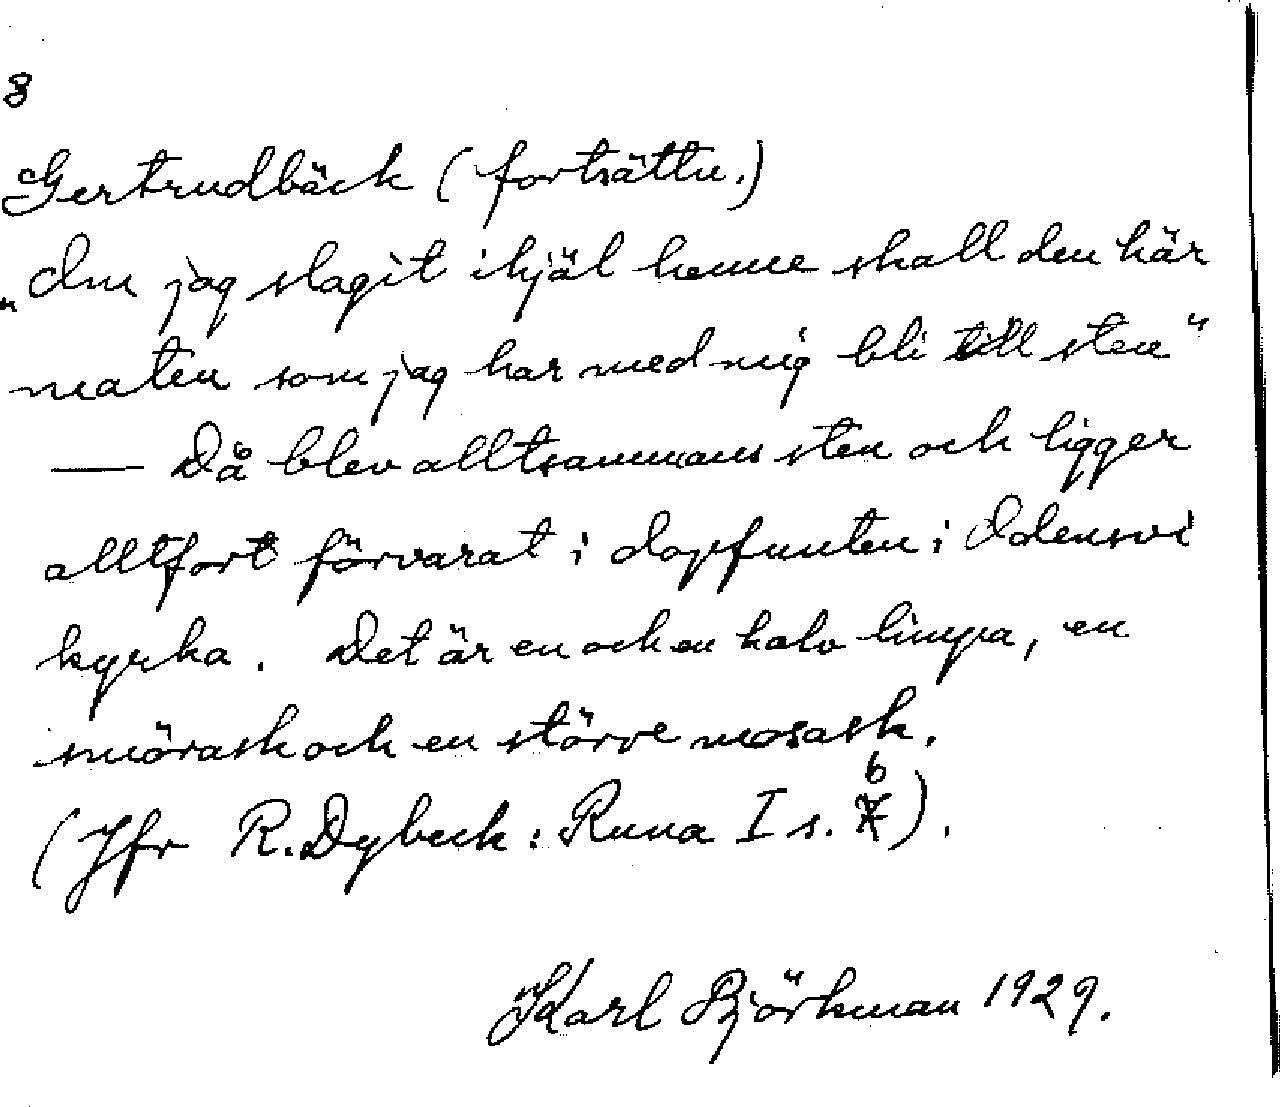 8
Gertrudbäck (fortsättn.)
„Om jag slagit ihjäl henne skall den här
maten som jag har med mig bli till sten"
— Då blev alltsammans sten och ligger
alltfort förvarat i dopfunten i Odensvi
kyrka. Det är en och en halv limpa, en
smörask och en större mosask.
(Jfr R. Dybeck: Runa I s. 6).
Karl Björkman 1929.